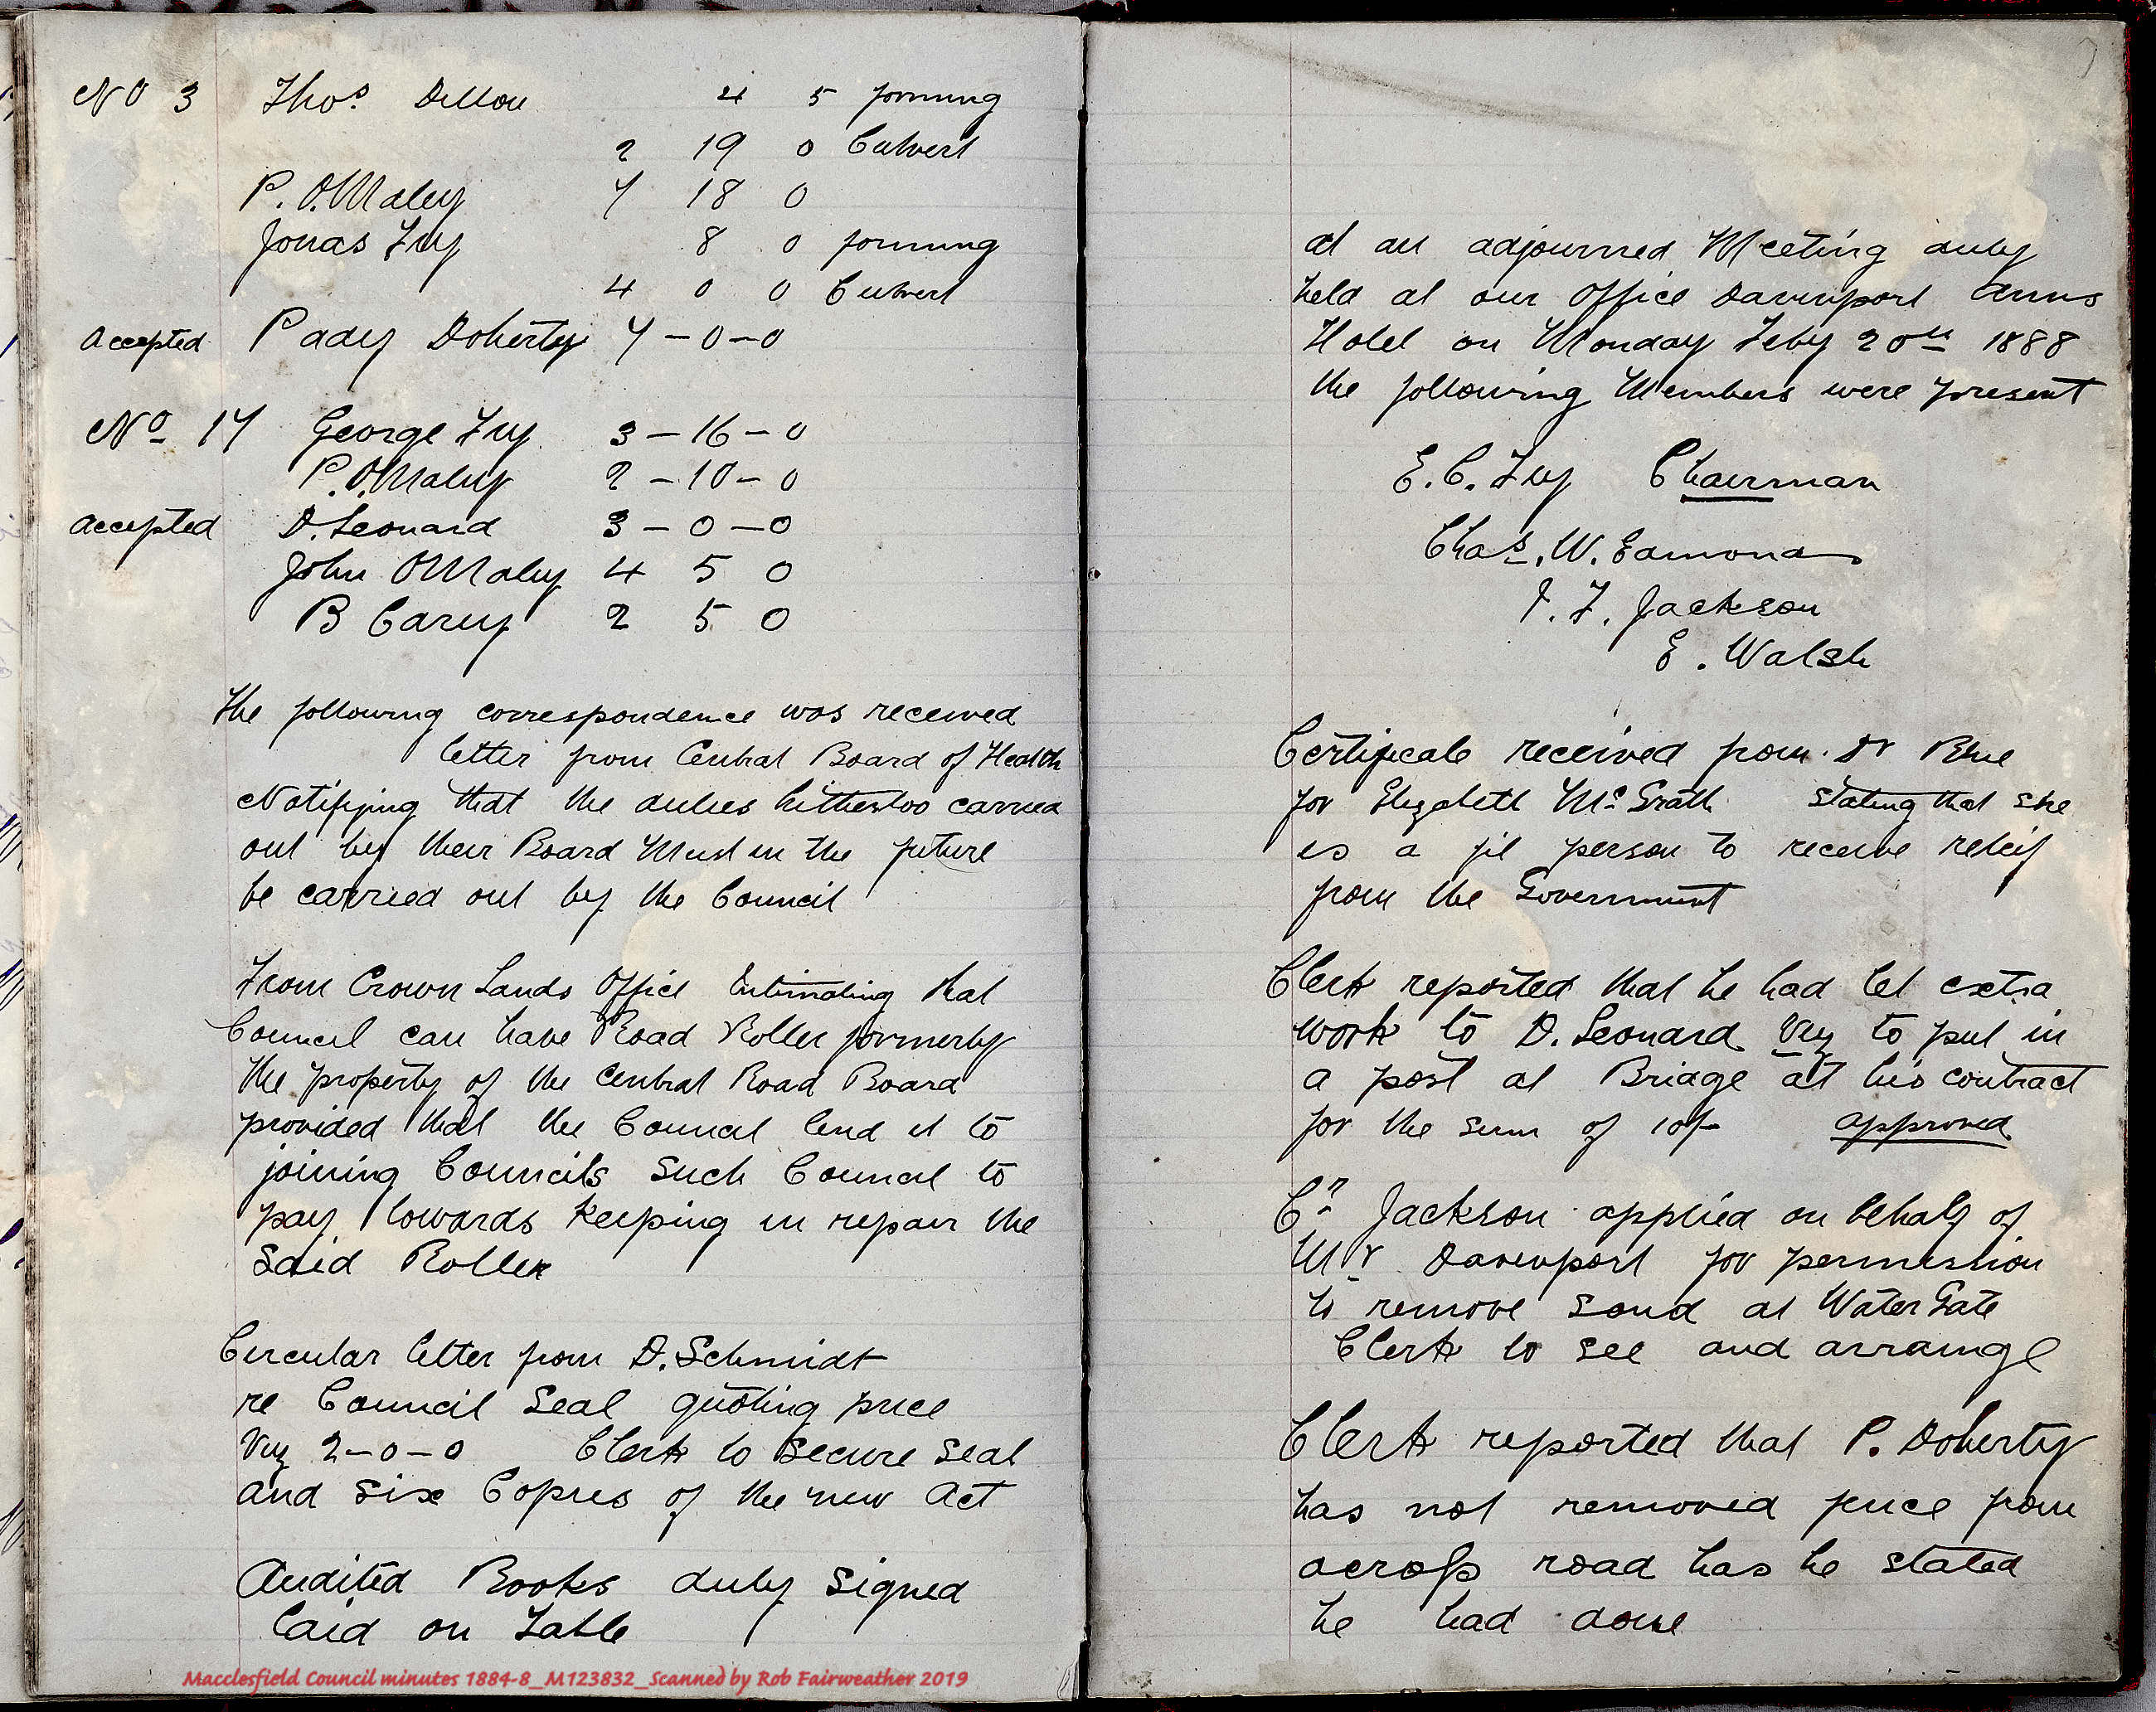 No 3 Thos. Dillon 4 5 forming
2 19 0 Culvert
P. O.Maley 7 18 0
Jonas Fry 8 0 forming
4 0 0 Culvert
Accepted Pady Doherty 7-0-0
No 17 George Fry 3-16-0
P. O.Maley 2-10-0
Accepted D. Leonard 3-0-0
John OMaley 4 5 0
B Carey 2 5 0
The following correspondence was received
letter from Central Board of Health
Notifying that the duties hithertoo carried
out by their Board Must in the future
be carried out by the Council
From Crown Lands Office Intimating that
Council can have Road Roller formerly
the property of the Central Road Board
provided that the Council lend it to
joining Councils such Council to
pay towards keeping in repair the
said Roller
Circular letter from D. Schmidt
re Council Seal quoting price
Viz 2-0-0 Clerk to secure seal
and six Copies of the new Act
Audited Books duly signed
laid on Table
Macclesfield Council minutes 1884-8_M123832_Scanned by Rob Fairweather 2019
7
at an adjourned Meeting duly
held at our Office Davenport Arms
Hotel on Monday Feby 20th 1888
the following Members were present
E. C. Fry Chairman
Chas. W. Edmonds
J. F. Jackson
E. Walsh
Certificate received from Dr Blue
for Elizabeth McGrath stating that she
is a fit person to receive releif
from the Government
Clerk reported that he had let extra
work to D. Leonard Viz to put in
a post at Bridge at his contract
for the sum of 10/- approved
Cr Jackson applied on behalf of
Mr Davenport for permission
to remove sand at Water Gate
Clerk to see and arrange
Clerk reported that P. Doherty
has not removed fence from
across road has he stated
he had done